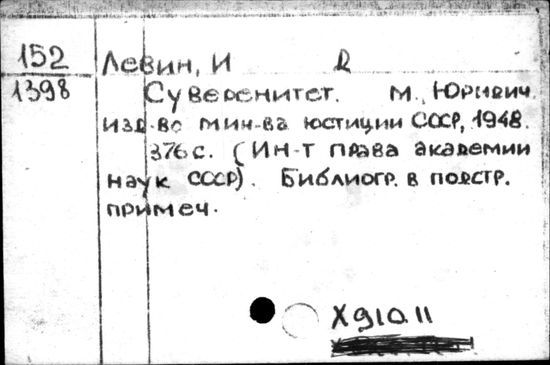 152 Левин, И D
1398 Суверенитет. М., Юридич.
изд-во мин-ва юстиции СССР, 1948.
376 с. (Ин-т права академии
наук СССР). Библиогр. в подстр.
примеч.
X910.11